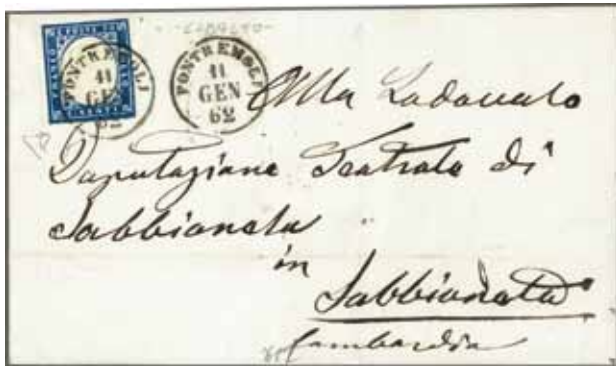 -COBALTO-
PONTREMOLI
11
GEN
62
PONTREMOLI
11
GEN
62
Alla Lodevole
Deputazione Teatrale di
Sabbioneta
in
Sabbioneta
Lombardia